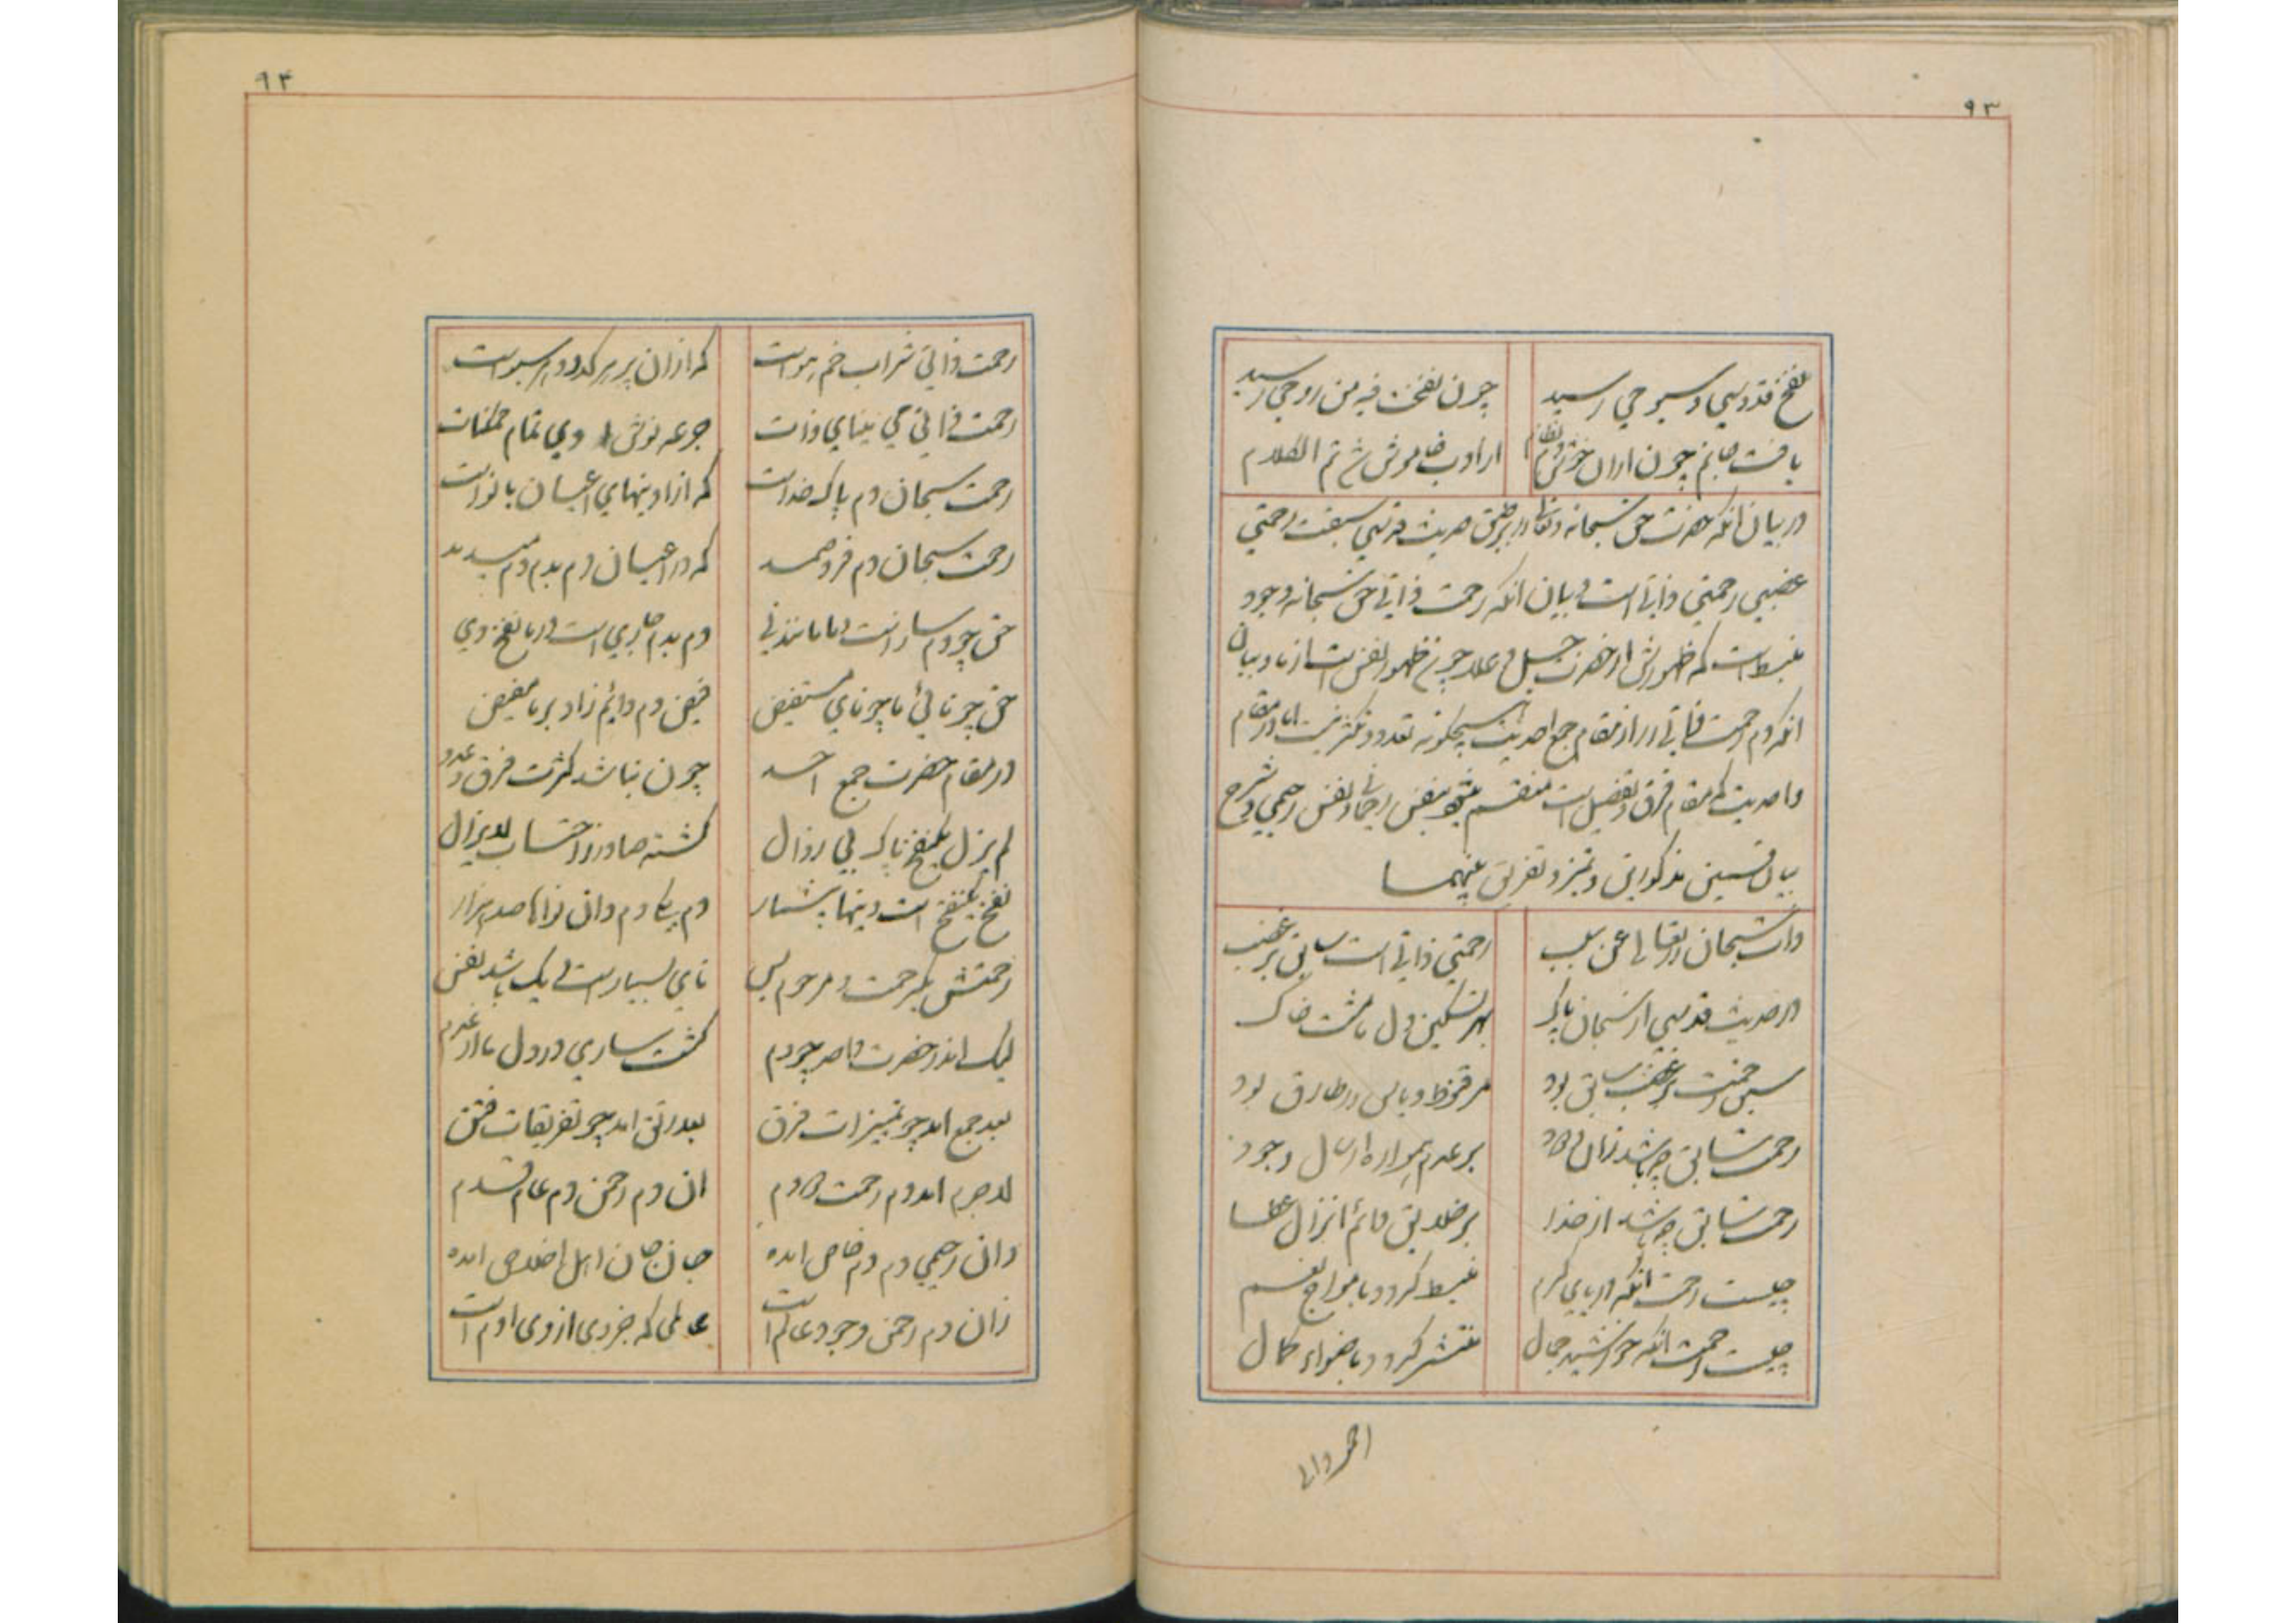 ۹۳
نفخ قدوسی و سبوحی رسید
چون نفخت فیه من روحی رسید
یافت جانم چون ازان خوش دم نظام
از ادب خاموش شو تم الکلام
در بیان انکه حضرت حق سبحانه وتعالی را بر طبق حدیث قدسی سبقت رحمتی
غضبی رحمتی ذاتی است و بیان انکه رحمت ذاتی حق سبحانه وجود
منبسط است که ظهورش از حضرت جل و علا چون ظهور نفس است از ما و بیان
انکه دم رحمت ذاتی را در مقام جمع احدیت هیچکونه تعدد و تکثر نیست اما در مقام
واحدیت که مقام فرق و تفصیل است منقسم میشود بنفس رحمانی و نفس رحیمی و شرح
بیان قسمین مذکورین و تمیز و تفریق بینهما
ذات سبحان را تعالی عن سبب
رحمتی ذاتی است سابق بر غضب
در حدیث قدسی از سبحان پاک
بهر تسکین دل ما مشت خاک
سبق رحمت بر غضب سابق بود
رحمت سابق چه باشد زان
بر عدم همواره ارسال وجود
رحمت سابق چه باشد از خدا
بر خلایق دائم انزال عطا
چیست رحمت انکه دریای کرم
منبسط کردد بامواج نعم
چیست رحمت انکه خورشید جمال
منتشر کردد باضواء کمال
۹۴
رحمت ذاتی شراب خم هوست
که ازان پر هر کدو و هر سبوست
رحمت ذاتی می مینای ذات
جرعه نوش وی تمام ممکنات
رحمت سبحان دم پاک خداست
که ازو نیهای اعیان با نواست
رحمت سبحان دم فرد صمد
که در اعیان دم بدم دم میدمد
حق چو دم سازست و ما مانند نی
دم بدم جاری است در ما نفخ وی
حق چو نائی ما چو نای مستفیض
فیض دم دایم ز او بر ما مفیض
در مقام حضرت جمع احد
چون نباشد کثرت فرق و عدد
لم یزل یک نفخ پاک بی زوال
کشته صادر زاحتساب لایزال
نفخ یک نفخ است و نیها بیشمار
دم یکی دم دان نواها صد هزار
رحمتش یک رحمت و مرحوم بس
نای بسیار است و یک باشد نفس
لیک اندر حضرت واحد چو دم
کشت ساری در دل ما از عدم
بعد جمع امد چو تمییزات فرق
بعد رتق امد چو تفریقات فتق
لاجرم امد دم رحمت دو دم
ان دم رحمن دم عام قدم
وان رحیمی دم دم خاص امده
جان جان اهل اخلاص امده
زان دم رحمن وجود عالم است
عالمی که جزوی از وی ادم است